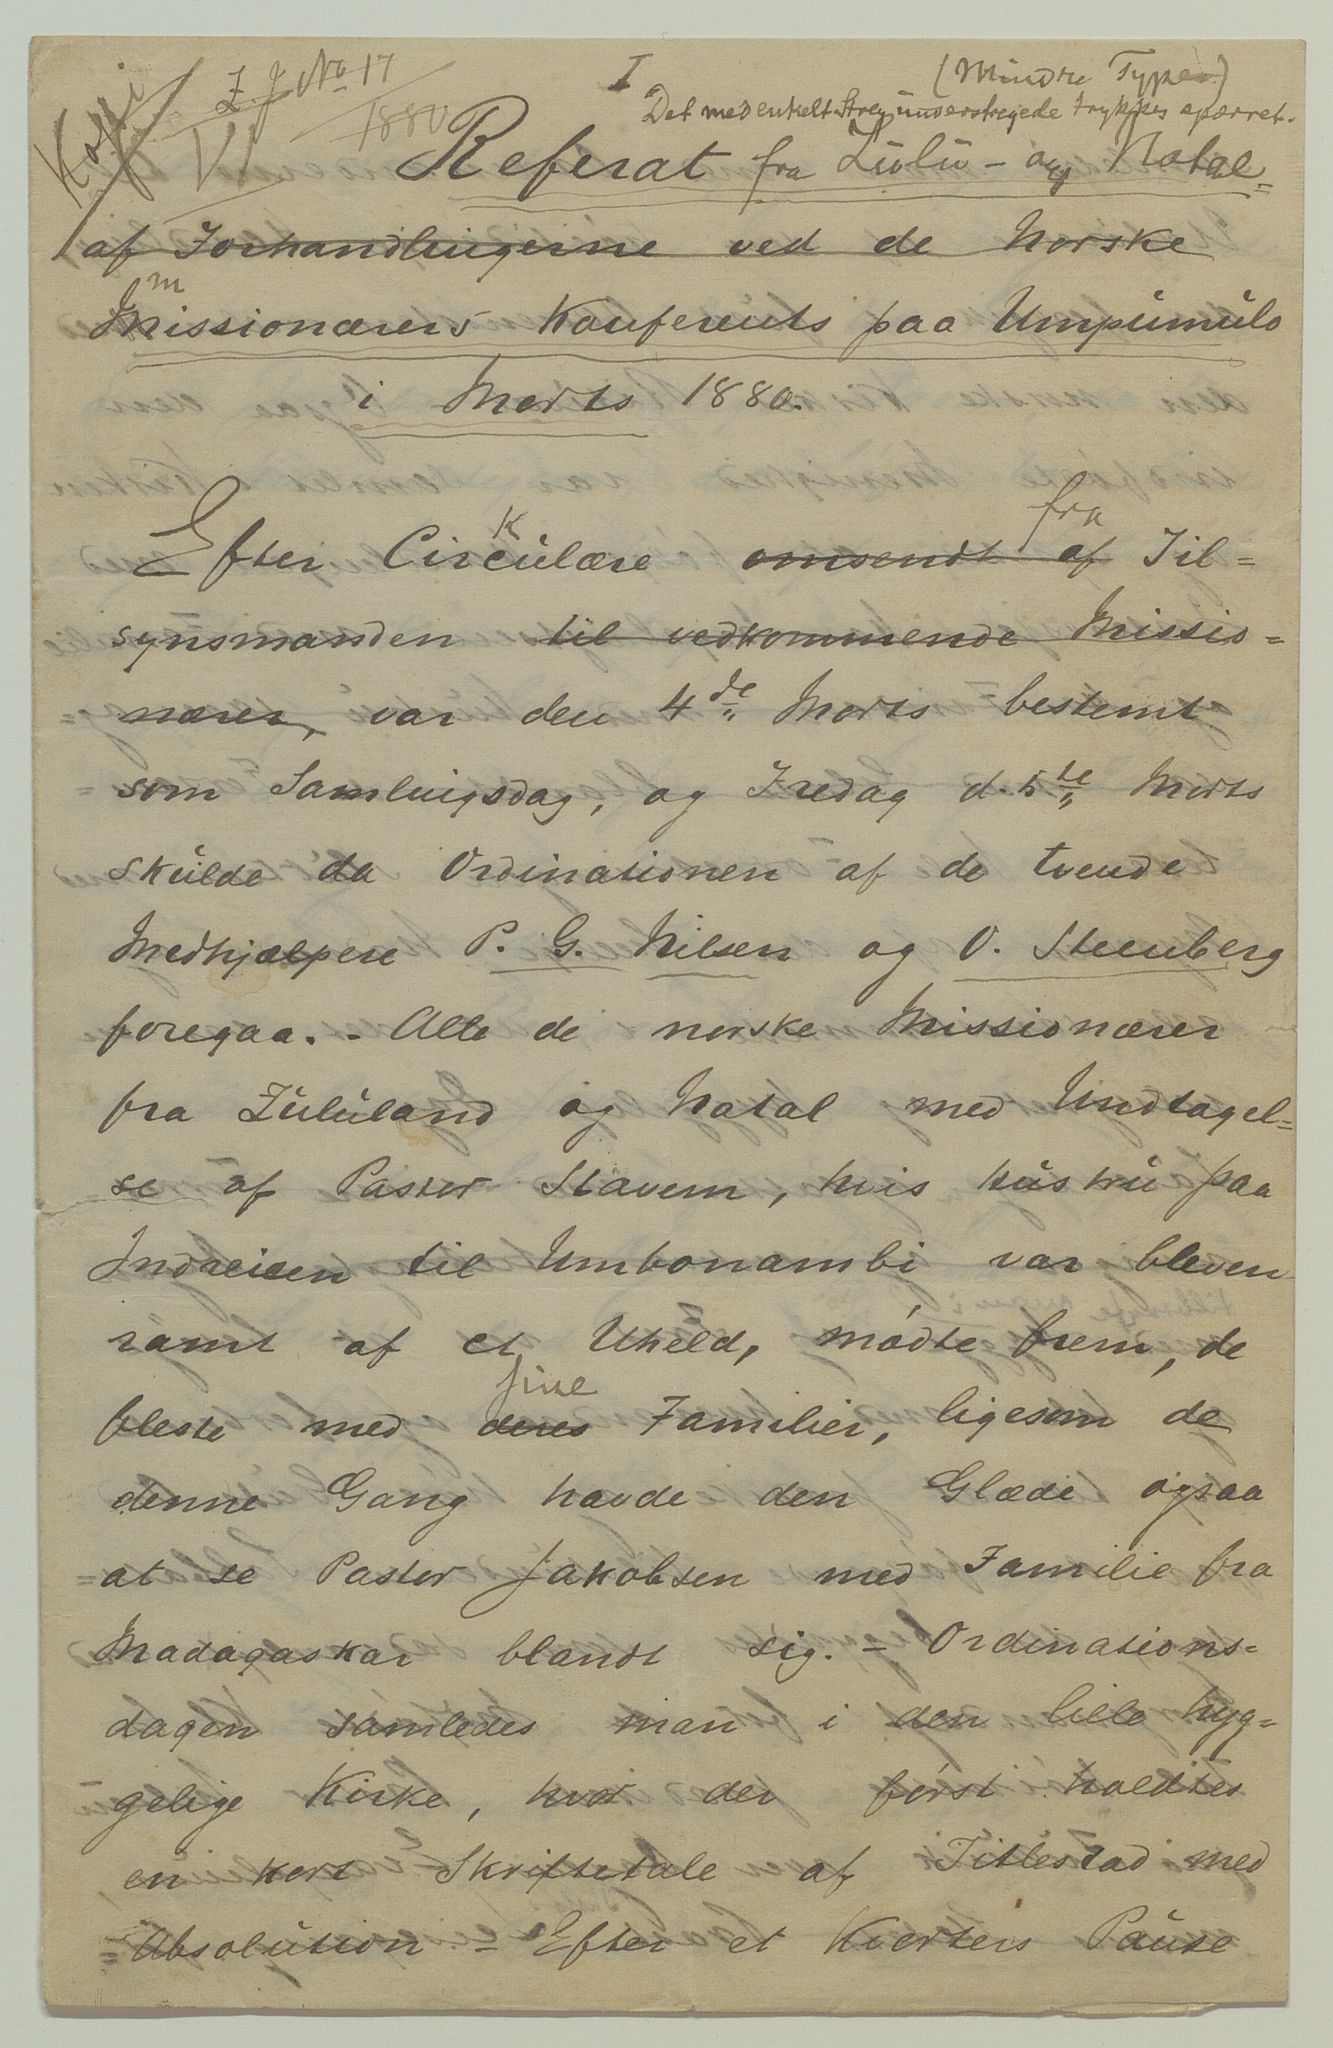 Kopi
Z. J. No 17
VI 1880
I.
(Mindre Typer)
Det med enkelt Streg understregede trykkes spærret.
Referat fra Zulu- og Natal=
af Forhandlingerne ved de Norske
m
Missionærers Konferents paa Umpumulo
i Marts 1880.
k fra
Efter Circulære omsendt af Til=
synsmanden til vedkommende Missio=
nærer, var den 4de Marts bestemt
som Samlingsdag, og Fredag d. 5te Marts
skulde da Ordinationen af de tvende
Medhjælpere P. G. Nilsen og O. Steenberg
foregaa. - Alle de norske Missionærer
fra Zululand og Natal med Undtagel=
se af Pastor Stavem, hvis Hustru paa
Indreisen til Umbonambi var bleven
ramt af et Uheld, mødte frem, de
sine
fleste med deres Familier, ligesom de
denne Gang havde den Glæde ogsaa
at se Pastor Jakobsen med Familie fra
Madagaskar blandt sig. - Ordinations=
dagen samledes man i den lille hyg=
gelige Kirke, hvor der først holdtes
en kort Skriftetale af Titlestad med
Absolution - Efter et Kvarters Pause